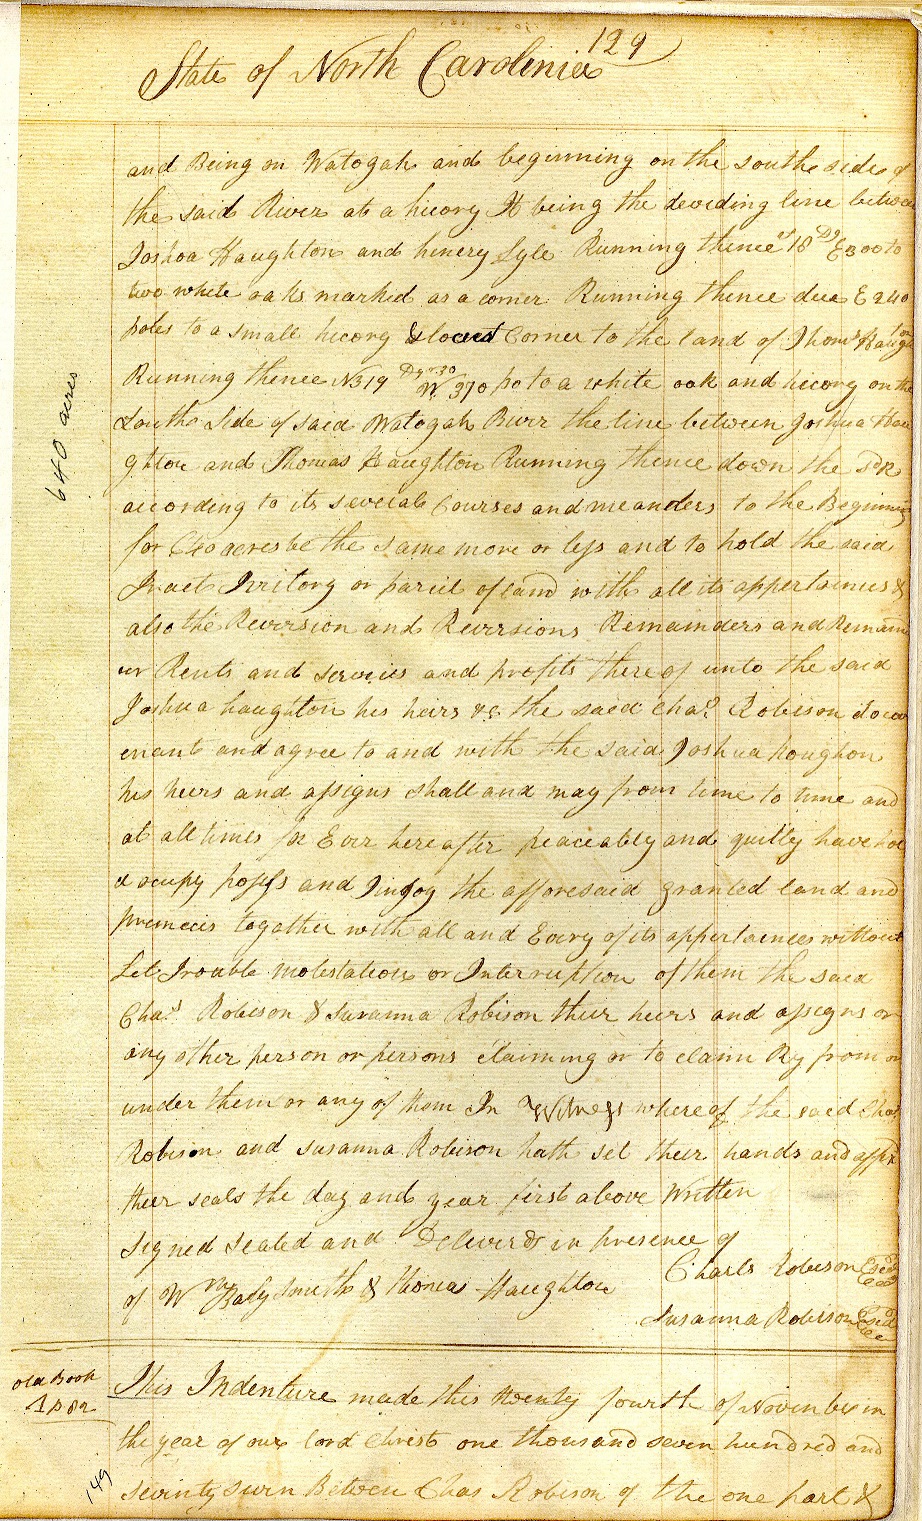 129
State of North Carolinia
and Being on Watogah and beginning on the south side of
the said River at a hicory It being the deviding line between
Joshoa Haughton and hinery Lyle Running thence 18 Dg E 300 to
two white oaks marked as a corner Running thence due E 240
poles to a small hicory & locust Corner to the land of Thoms Haughton
Running thence N 319 Dgr 30 W 370 po to a white oak and hicory on the
South Side of said Watogah River the line between Joshua Hau
ghton and Thomas Haughton Running thence down the sd R
according to its severale Courses and meanders to the Beginning
for 640 acres be the same more or less and to hold the said
Tract Tirritory or parcil of land with all its appertainces &
also the Revirsion and Revirsions Remainders and Remain
er Rents and servicis and profits there of unto the said
Joshua haughton his heirs &c the said Chas Robison do cov
enant and agree to and with the said Joshua houghon
his heirs and assigns shall and may from time to time and
at all times for Ever here after peaceably and quitly have hol
d ocupy posess and Injoy the afforesaid granted land and
premecis togather with all and Every of its appertainces without
Let Trouble molestation or Interruption of them the said
Chas Robison & Susanna Robison their heirs and assigns or
any other person or persons claiming or to claim By from or
under them or any of them In Witness where of the said Chas
Robison and susanna Robison hath set their hands and affixd
their seals the day and year first above Written
signed sealed and Deliverd in presence of
of Wm Baly Smith & Thomas Haughton
Charls Robison
Susanna Robison
640 acres
Old Book
This Indenture made this twenty fourth of November in
the year of our lord Christ one thousand seven hundred and
sevinty sevn Between Chas Robison of the one part &
149